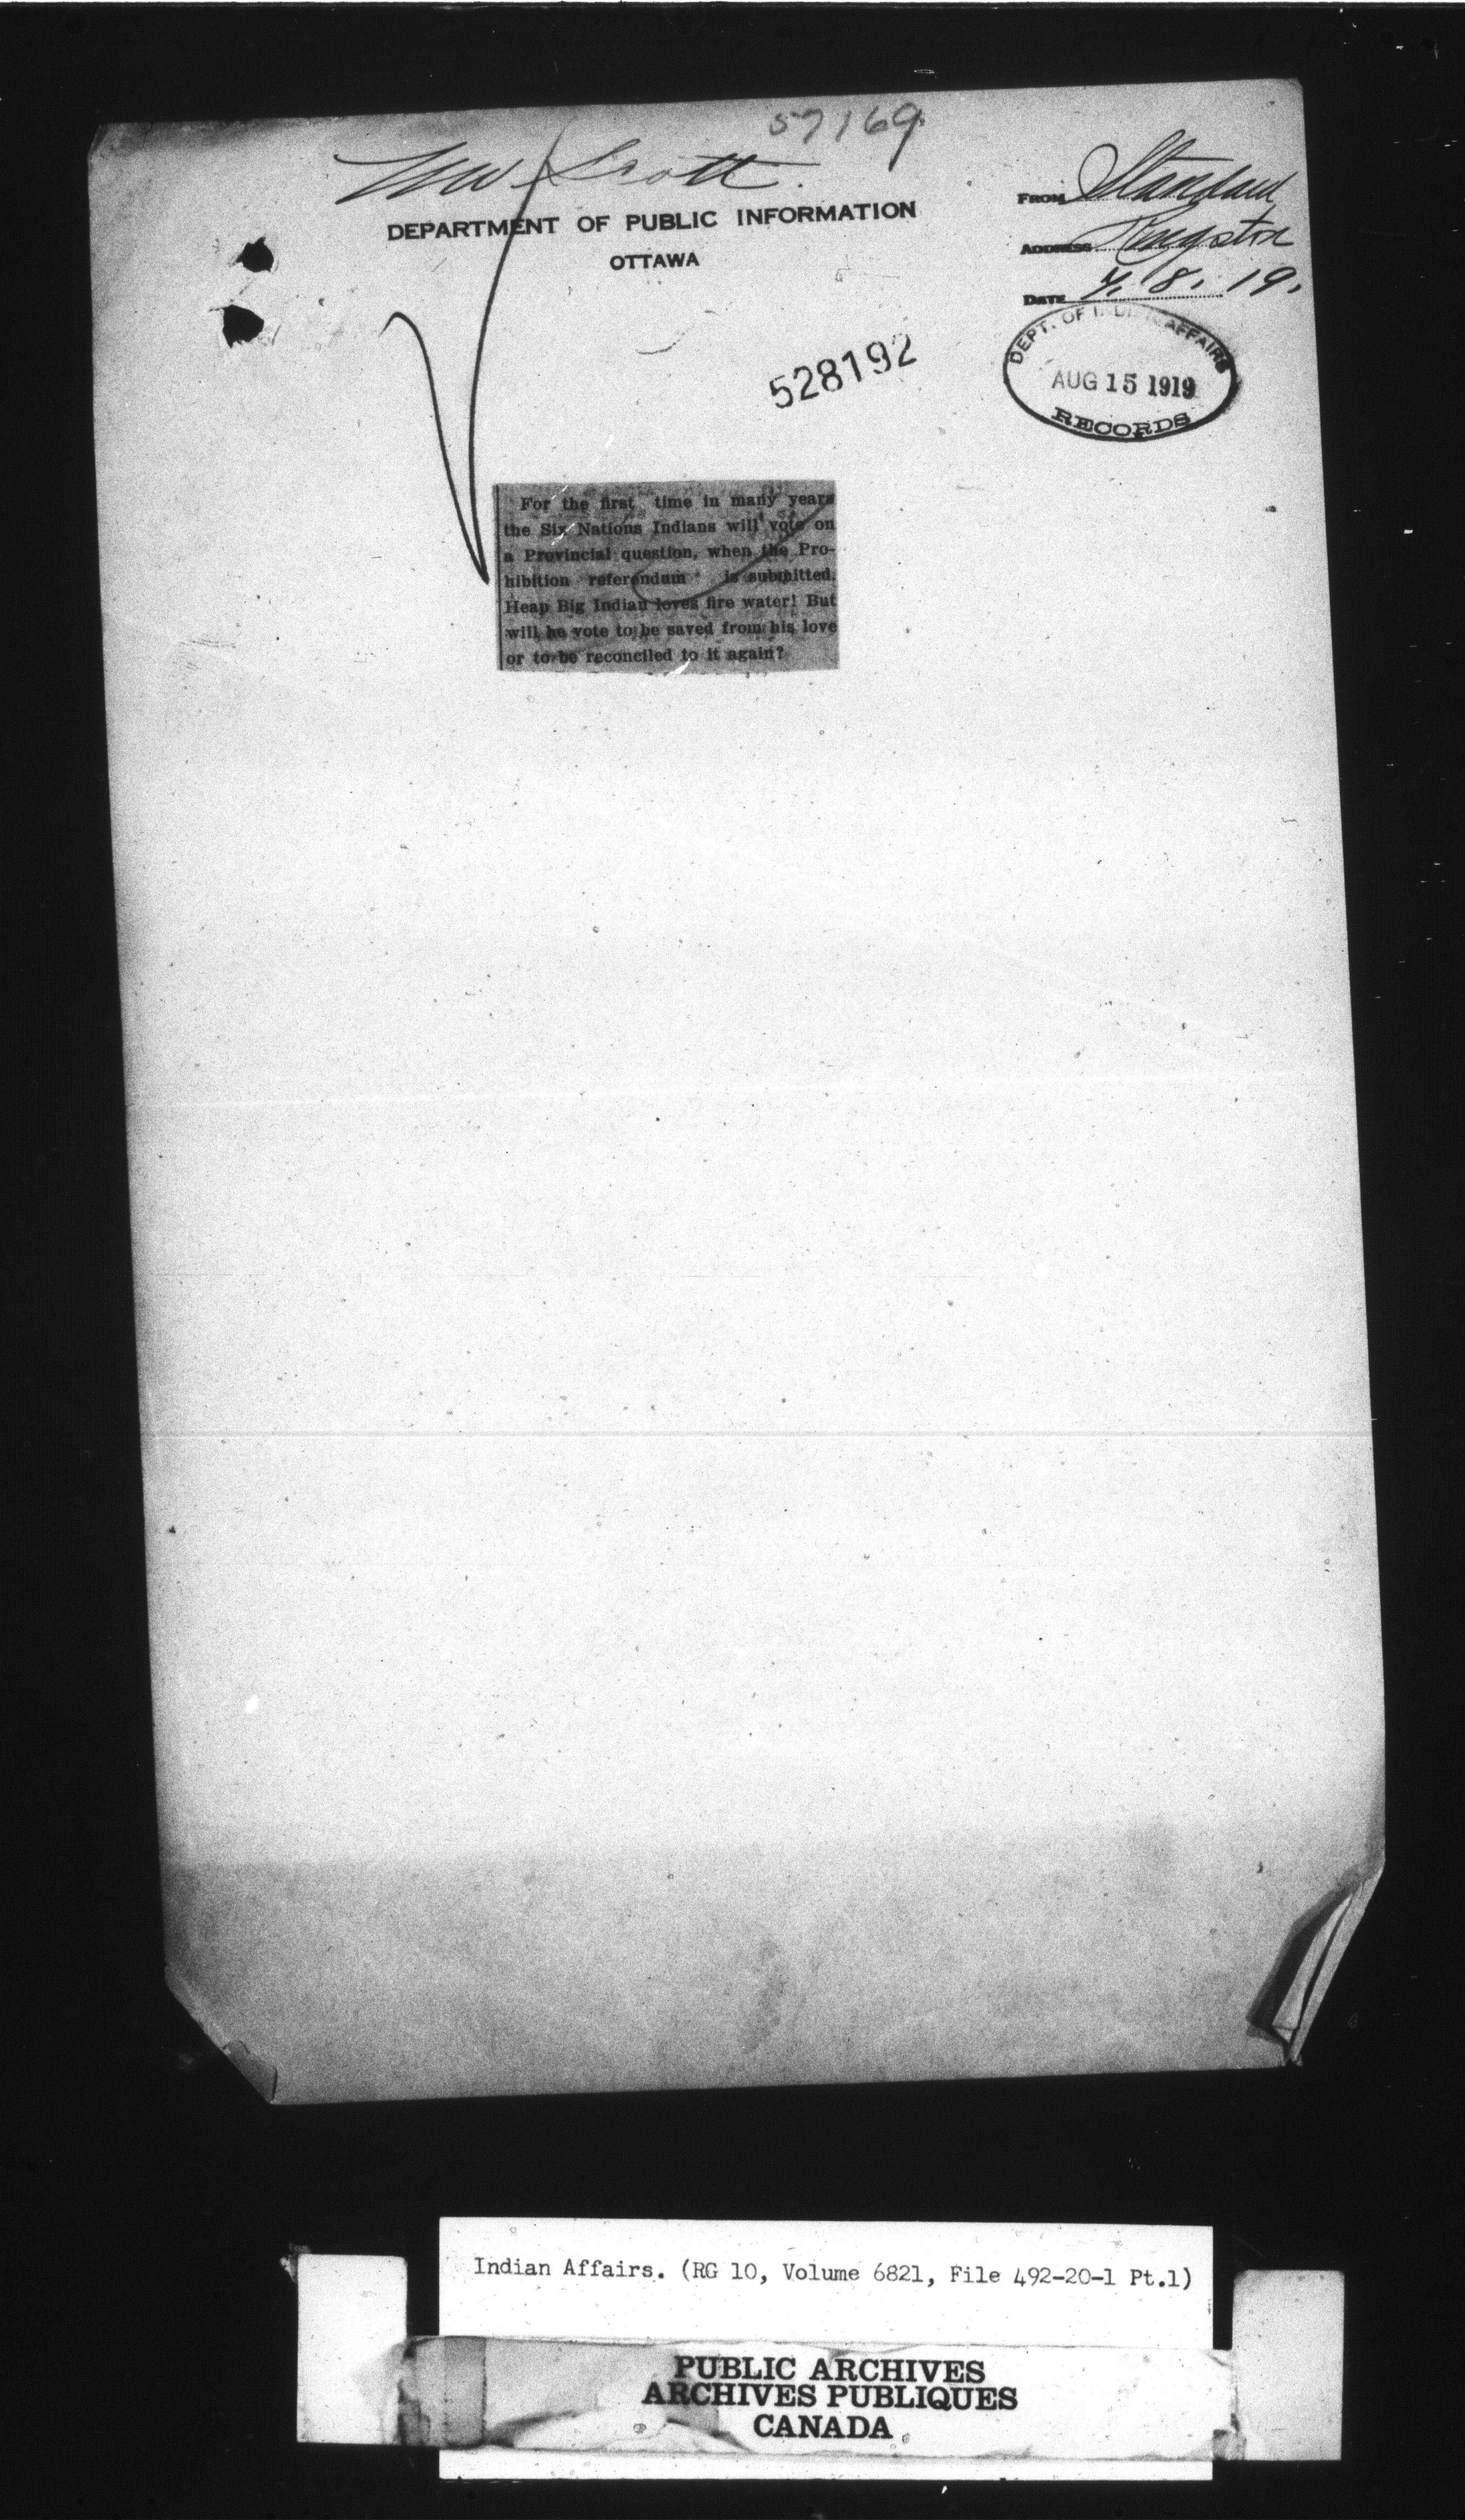 57169
Mr Scott.
DEPARTMENT OF PUBLIC INFORMATION
OTTAWA
FROM Standard
ADDRESS Kingston
DATE 7. 8. 19.
528192
DEPT. OF INDIAN AFFAIRS
AUG 15 1919
RECORDS
For the first time in many years
the Six Nations Indians will vote on
a Provincial question, when the Pro-
hibition referendum is submitted.
Heap Big Indian loves fire water! But
will he vote to be saved from his love
or to be reconciled to it again?
Indian Affairs. (RG 10, Volume 6821, File 492-20-1 Pt.1)
PUBLIC ARCHIVES
ARCHIVES PUBLIQUES
CANADA